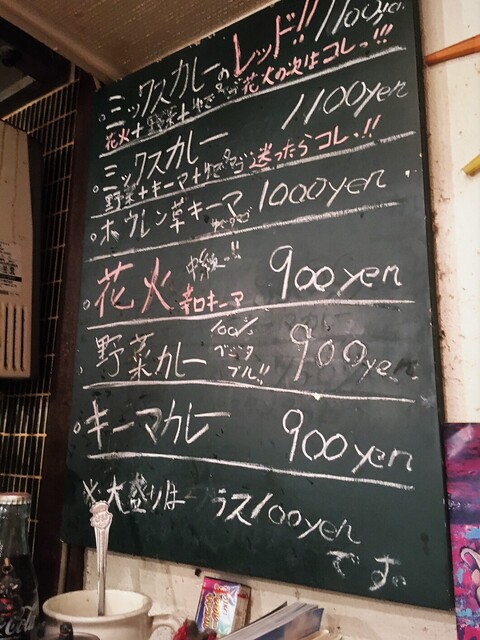 ミックスカレーのレッド!! 1100yen
花火+野菜+ゆでタマゴ 花火の次はコレっ!!!
ミックスカレー 1100yen
野菜+キーマ+ゆでタマゴ 迷ったらコレっ!!
ホウレン草キーマ ゆでタマゴ 1000yen
花火 中級〜!! 900yen
辛口キーマ
野菜カレー 100% ベジタブル!! 900yen
キーマカレー 900yen
※大盛りは プラス100yen
です。